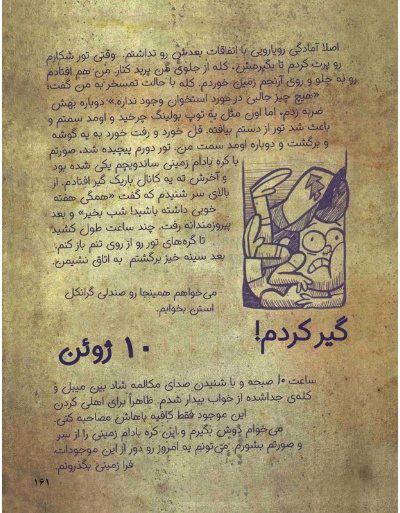 اصلا آمادگی رویارویی با اتفاقات بعدش رو نداشتم. وقتی تور شکارم
رو پرت کردم تا بگیرمش، کله از جلوی من پرید کنار. من هم افتادم
رو به جلو و روی آرنجم زمین خوردم. کله با حالت تمسخر به من گفت:
«هیچ چیز جالبی در مورد استخوان وجود نداره.» دوباره بهش
ضربه زدم، اما اون مثل یه توپ بولینگ چرخید و اومد سمتم و
باعث شد تور از دستم بیافته. قل خورد و رفت خورد به یه گوشه
و برگشت و دوباره اومد سمت من. تور دورم پیچیده شد، صورتم
با کره بادام زمینی ساندویچم یکی شده بود
و آخرش ته یه کانال باریک گیر افتادم. از
بالای سر شنیدم که گفت «همگی هفته
خوبی داشته باشید! شب بخیر» و بعد
پیروزمندانه رفت. چند ساعت طول کشید
تا گره‌های تور رو از روی تنم باز کنم.
بعد سینه خیز برگشتم به اتاق نشیمن.
می‌خواهم همینجا رو صندلی گرانکل
استن بخوابم.
گیر کردم!
۱۰ ژوئن
ساعت ۱۰ صبحه و با شنیدن صدای مکالمه شاد بین میبل و
کله‌ی جداشده از خواب بیدار شدم. ظاهرا برای اهلی کردن
این موجود فقط کافیه باهاش مصاحبه کنی.
می‌خوام دوش بگیرم و این کره بادام زمینی را از سر
و صورتم بشورم. می‌تونم یه امروز رو دور از این موجودات
فرا زمینی بگذرونم.
۱۶۱